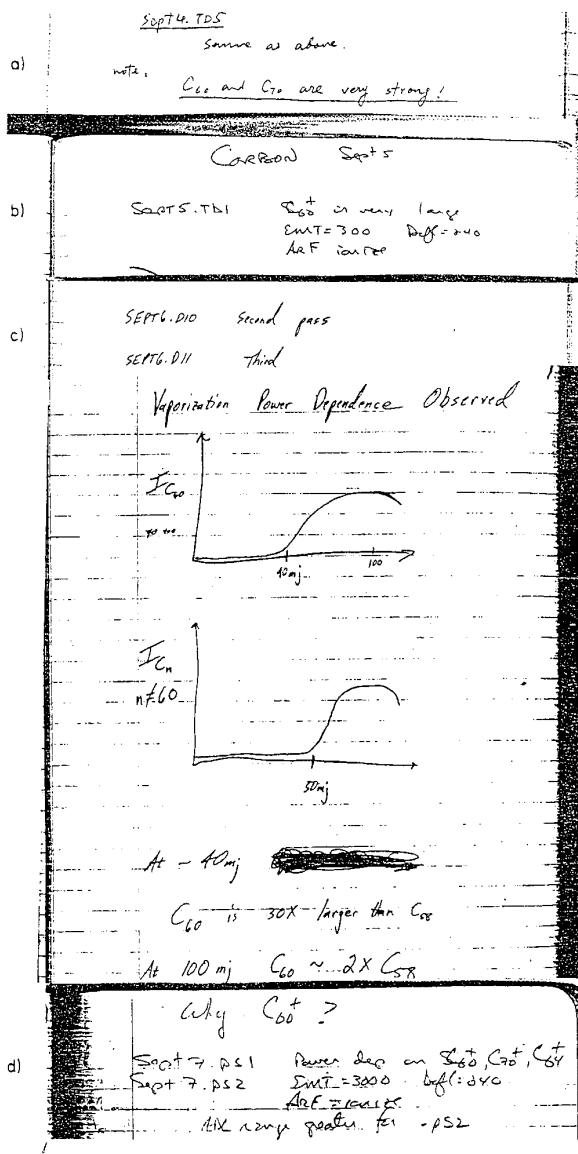 a)
Sept 4. TD5
Same as above.
note.
C60 and C70 are very strong!
CARBON Sept 5
b)
SEPT 5. TD1 C60+ is very large
EMT=300 Defl=240
ArF ionize
c)
SEPT6.D10 Second pass
SEPT6.D11 Third
Vaporization Power Dependence Observed
I C60
40mj 100
I Cn
n≠60
50mj
At ~ 40mj
C60 is 30X larger than C58
At 100 mj C60 ~ 2X C58
Why C60+ ?
d)
Sept 7. PS1 Power dep on C60+, C70+, C64+
Sept 7. PS2 EMT=3000 Defl=240
ArF ionize
range greater for .PS2